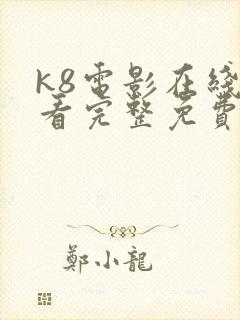 k8電影在綫
看完整免費
鄭小龍